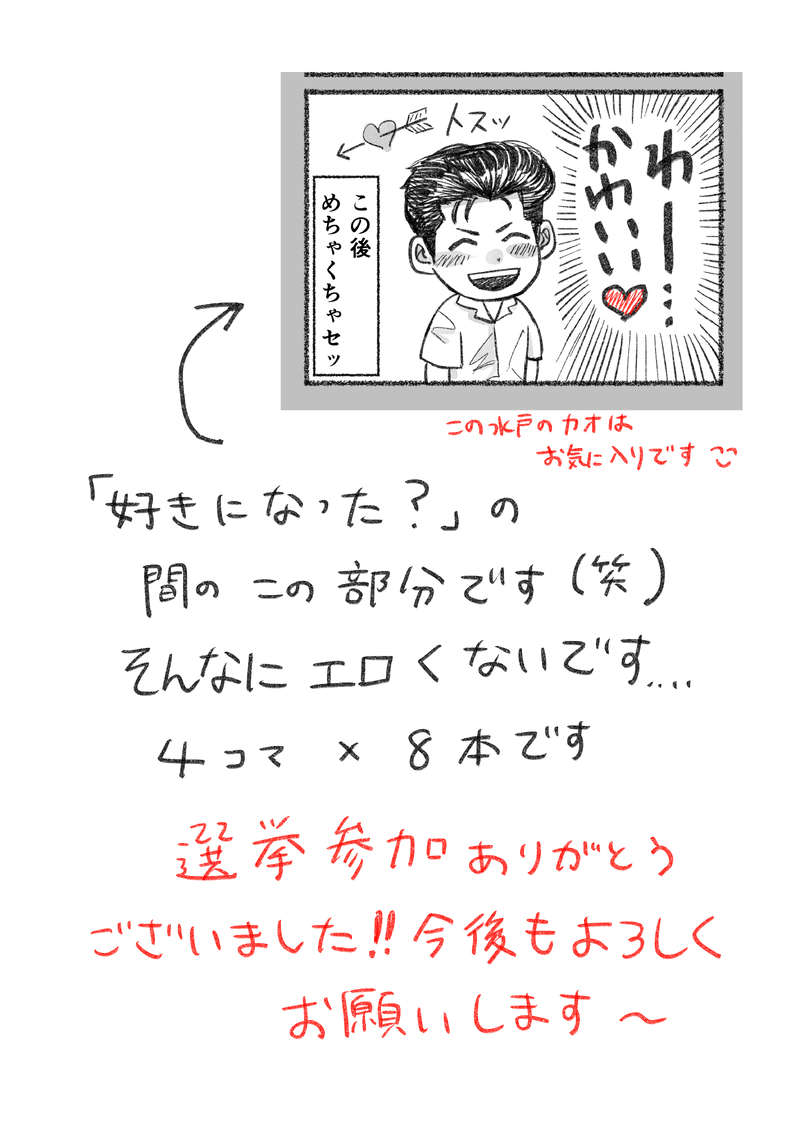 わー…
かわいい
トスッ
この後
めちゃくちゃセッ
この水戸のカオは
お気に入りです
「好きになった？」の
間の この部分です（笑）
そんなに エロくないです....
4コマ × 8本です
選挙参加ありがとう
ございました!!今後もよろしく
お願いします〜